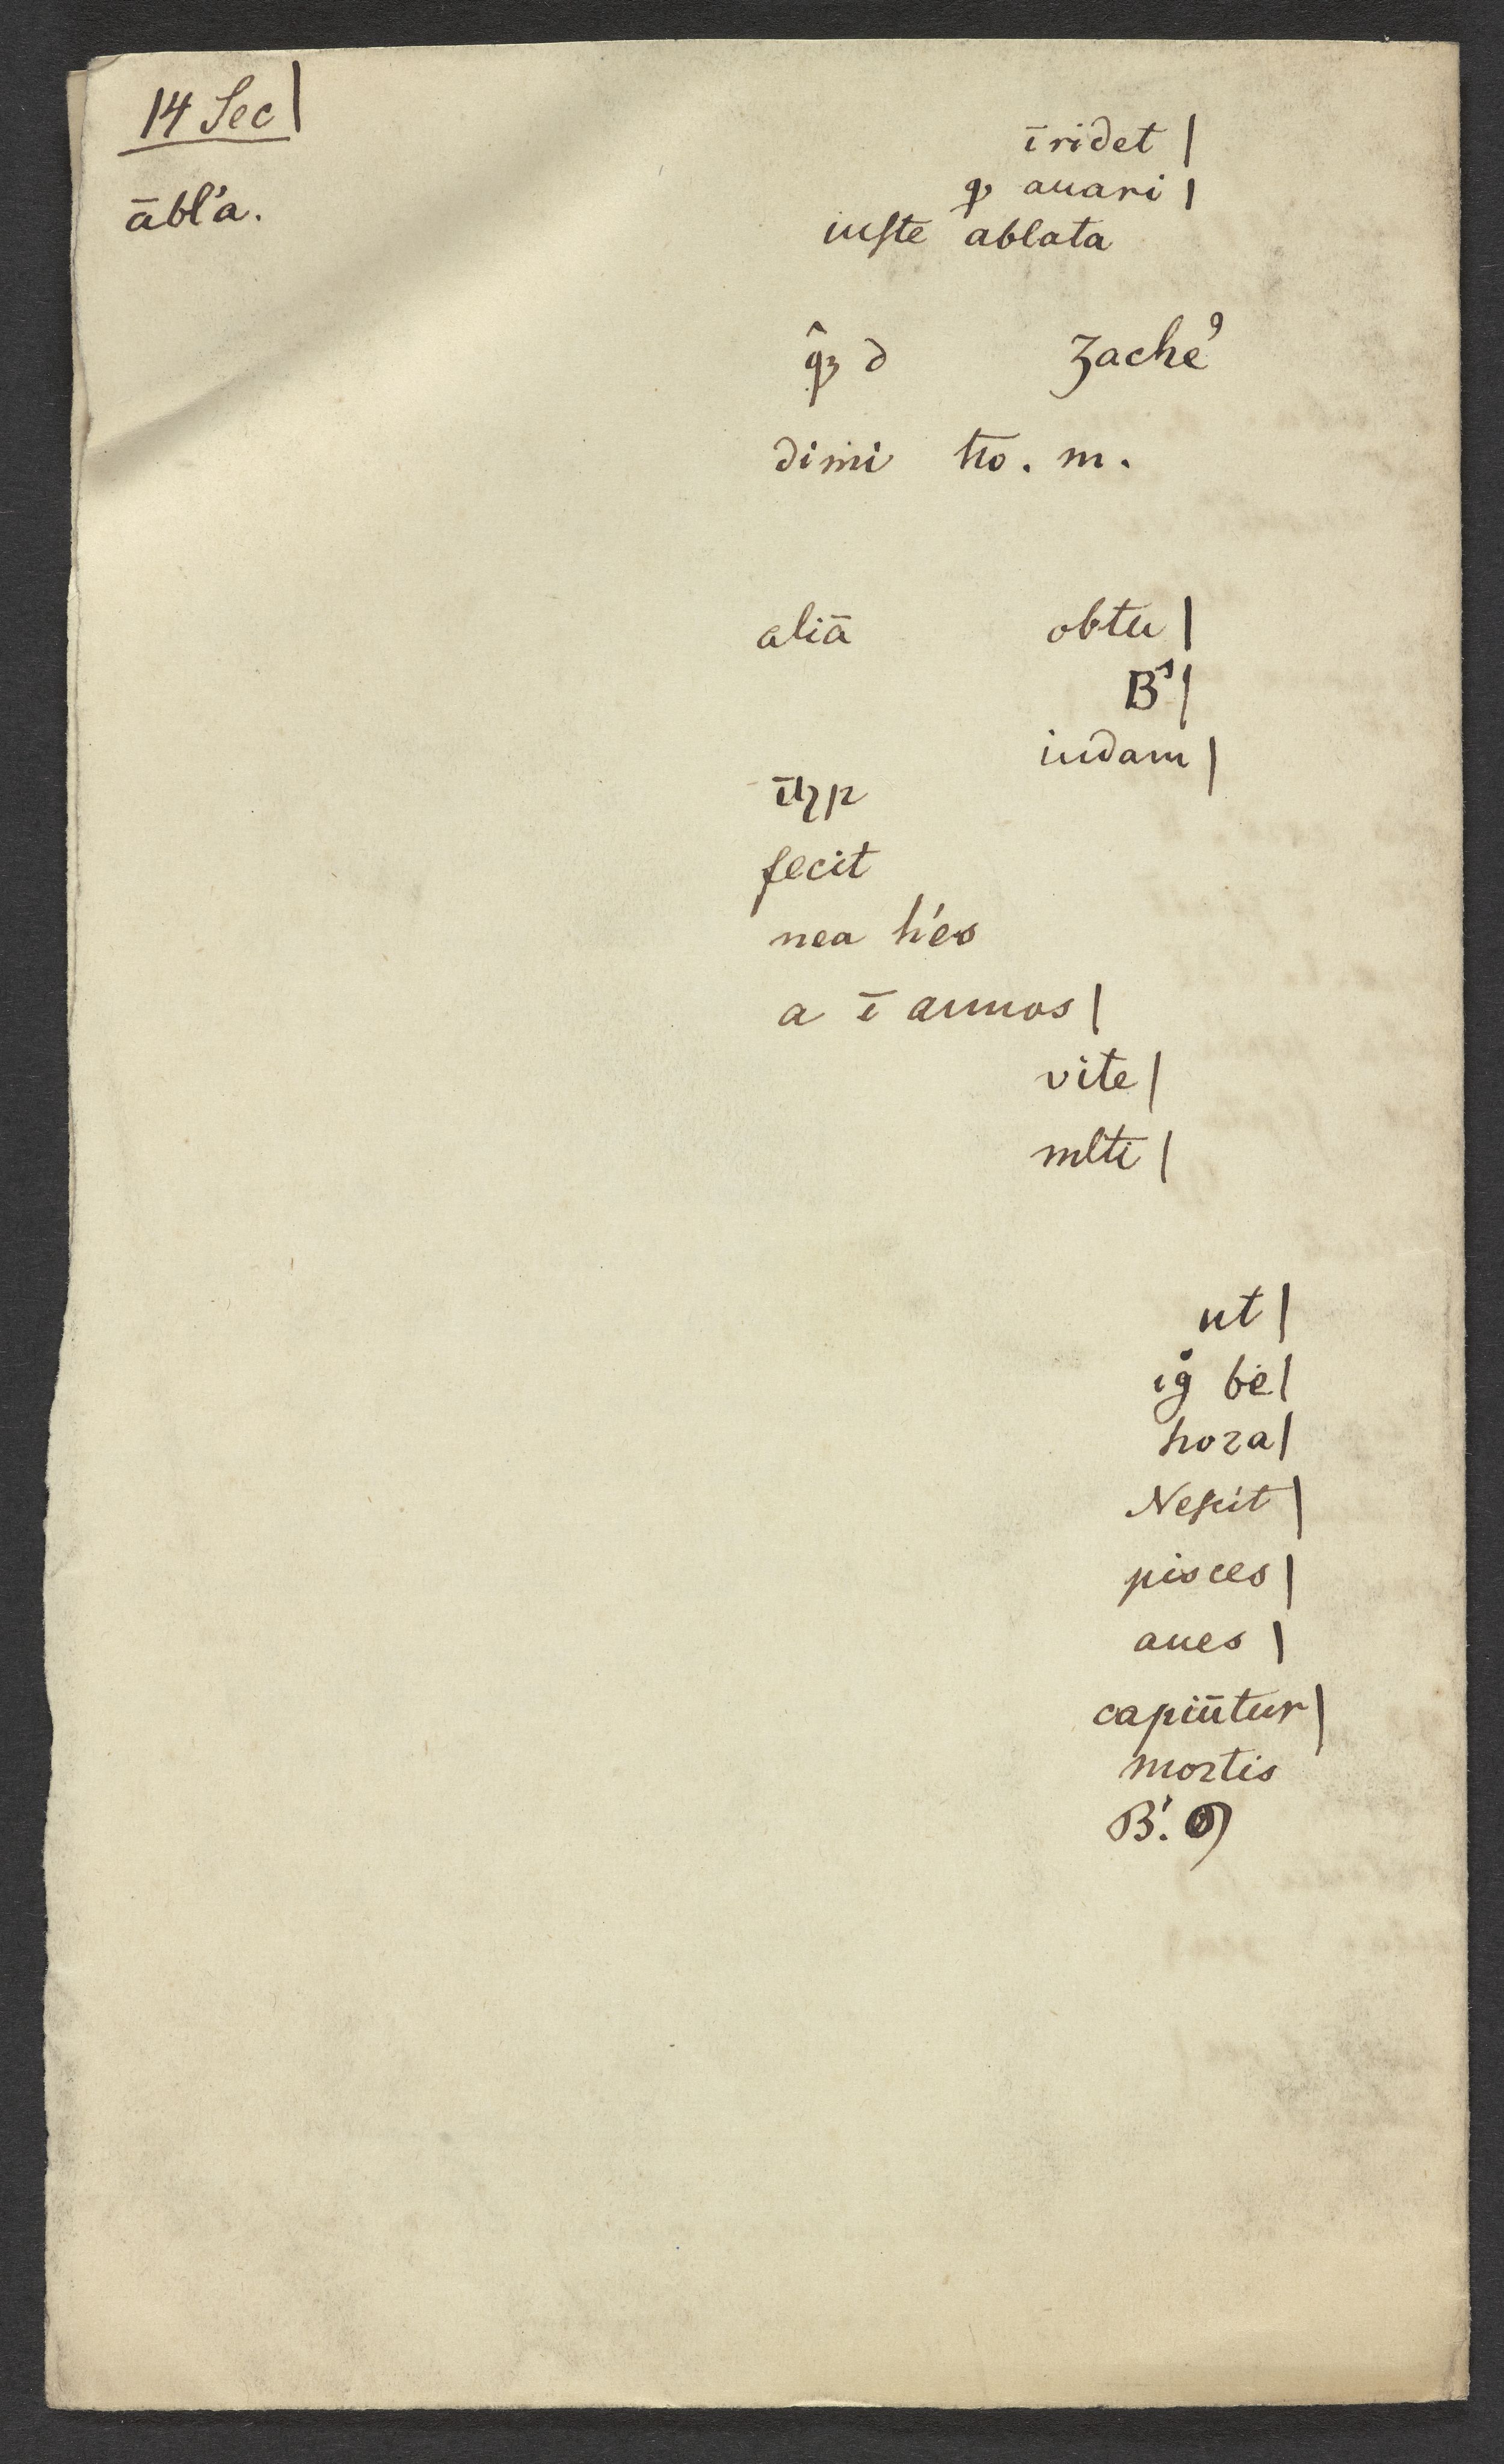 14 Sec |
ābl'a.
īridet |
ꝙ auari |
iuste ablata
ꝙ̂ d zacheꝰ
dimi tio. m.
aliā obtu |
B's |
iudam |
fecit
nea h'es
a ī annos |
vite |
mlti |
ut |
ig̊ be |
hoꝛa |
Nescit |
pisces |
aues |
capiūtur |
moꝛtis
B'.